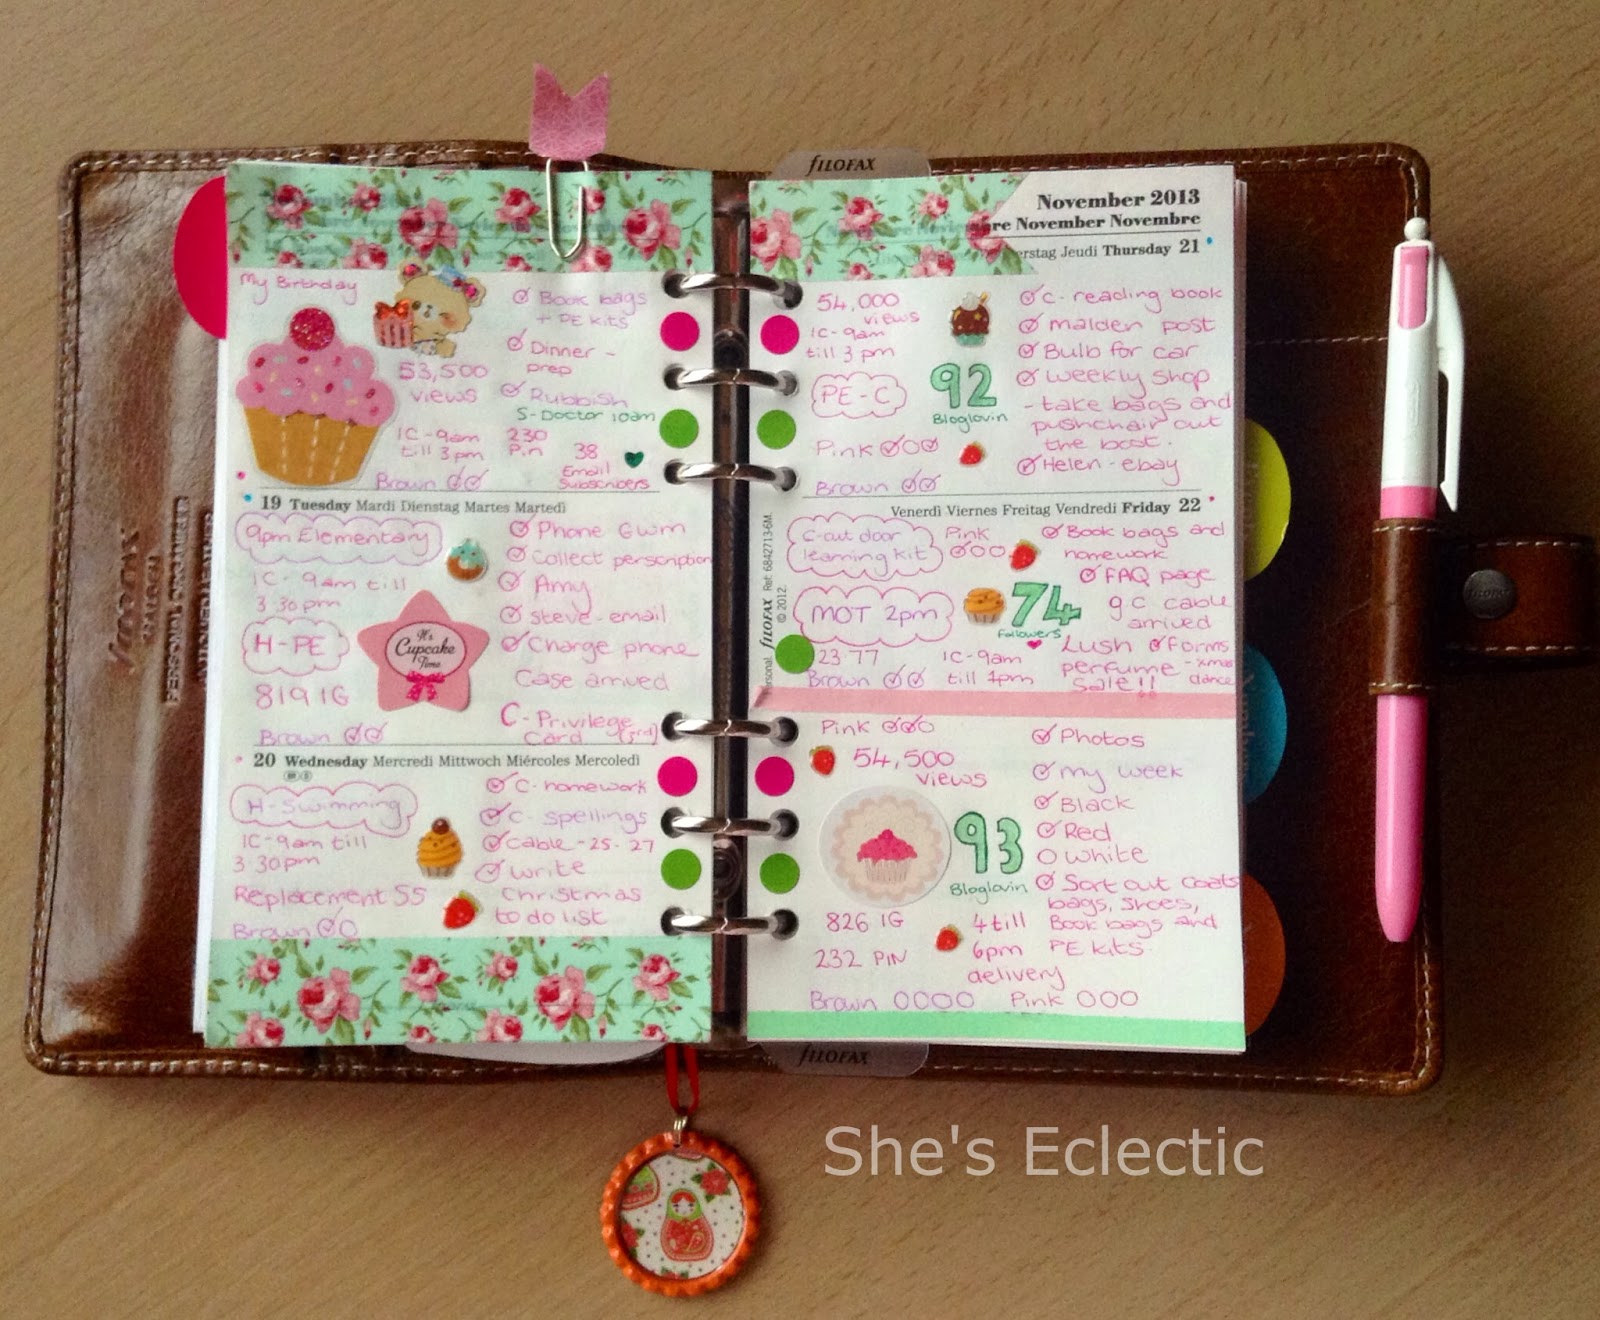 My Birthday
53,500
views
1C - 9am
till 3pm
230
Pin
38
Email
Subscribers
Brown
Book bags
+ PE kits
Dinner -
prep
Rubbish
S-Doctor 10am
19 Tuesday Mardi Dienstag Martes Martedì
9pm Elementary
1C - 9am till
3.30pm
H-PE
819 IG
Brown
It's
Cupcake
Time
Phone Gwm
Collect perscription
Amy
steve-email
Charge phone
Case arrived
C-Privilege
Card (3rd)
20 Wednesday Mercredi Mittwoch Miércoles Mercoledì
H-Swimming
1C-9am till
3.30pm
Replacement SS
Brown
C-homework
C-spellings
Cable-25-27
write
Christmas
to do list
FILOFAX
November 2013
re November Novembre
rstag Jeudi Thursday 21
54,000
views
1C-9am
till 3pm
PE-C
92
Bloglovin
Pink
Brown
C-reading book
malden post
Bulb for car
weekly shop
- take bags and
pushchair out
the boot.
Helen-ebay
Venerdì Viernes Freitag Vendredi Friday 22
C-out door
learning kit
Pink
MOT 2pm
74
Followers
23 77
Brown
1C-9am
till 1pm
Book bags and
homework
FAQ page
g c cable
arrived
Lush
perfume
Sale!!
Forms
-xmas
dance
Personal FILOFAX Ref: 6842713-6M.
© 2012.
Pink
54,500
views
93
Bloglovin
826 IG
232 PIN
4 till
6pm
delivery
Brown Pink
Photos
my week
Black
Red
white
Sort out coats
bags, shoes,
Book bags and
PE kits.
FILOFAX
She's Eclectic